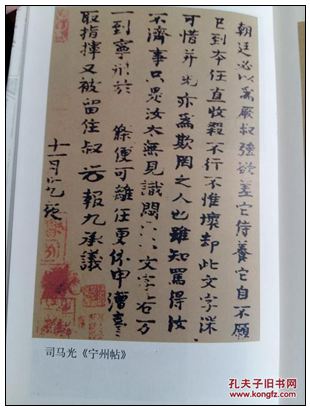 朝廷必以為厭叔強欲差它侍養它自不願
已到本任直收殺不行不惟壞却此文字深
可惜并光亦為欺罔之人也雖知罵得汝
不濟事只是汝太無見識悶〻文字若万
一到寧州於 條便可離任更休申漕臺
取指揮又被留住叔 報九承議
十一月
司马光《宁州帖》
孔夫子旧书网